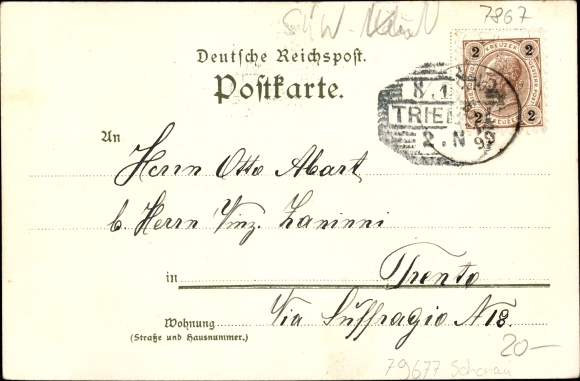 7867
Deutsche Reichspost.
Postkarte.
2 KREUZER 2
2 2
8.1
TRIEN
2.N
99
An
Herrn Otto Abart
b. Herrn Vinz. Zaninni
in Trento
Wohnung Via Suffragio N 18.
(Straße und Hausnummer.)
20-
79677 Schönau